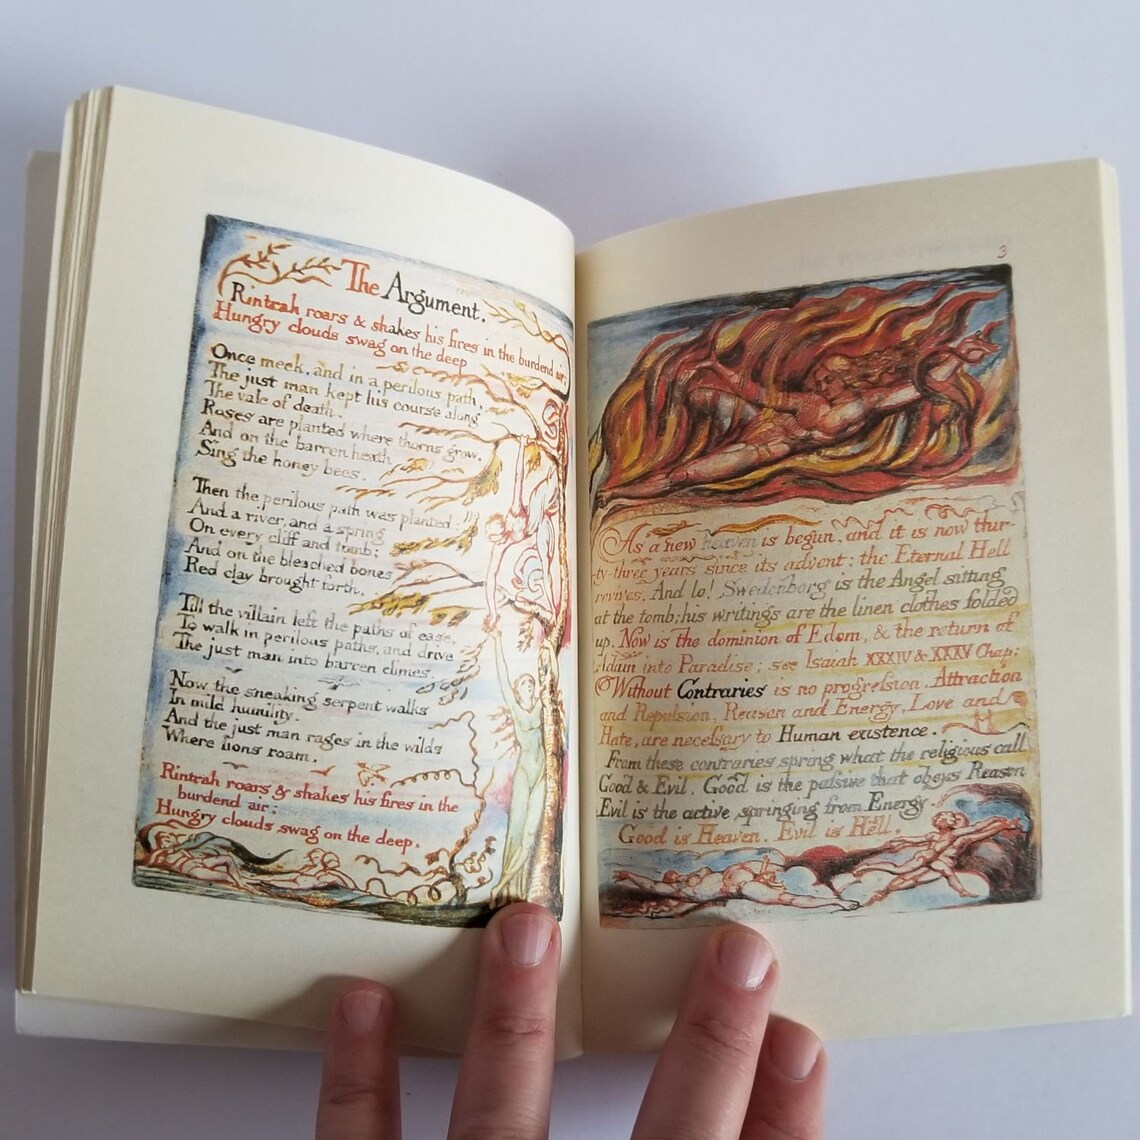 The Argument.
Rintrah roars & shakes his fires in the burdend air;
Hungry clouds swag on the deep
Once meek, and in a perilous path,
The just man kept his course along
The vale of death.
Roses are planted where thorns grow,
And on the barren heath
Sing the honey bees.
Then the perilous path was planted:
And a river, and a spring
On every cliff and tomb;
And on the bleached bones
Red clay brought forth.
Till the villain left the paths of ease,
To walk in perilous paths, and drive
The just man into barren climes.
Now the sneaking serpent walks
In mild humility.
And the just man rages in the wilds
Where lions roam.
Rintrah roars & shakes his fires in the
burdend air;
Hungry clouds swag on the deep.
3
As a new heaven is begun, and it is now thir-
ty-three years since its advent: the Eternal Hell
revives. And lo! Swedenborg is the Angel sitting
at the tomb: his writings are the linen clothes folded
up. Now is the dominion of Edom, & the return of
Adam into Paradise; see Isaiah XXXIV & XXXV Chap:
Without Contraries is no progression. Attraction
and Repulsion, Reason and Energy, Love and
Hate, are necessary to Human existence.
From these contraries spring what the religious call
Good & Evil. Good is the passive that obeys Reason
Evil is the active springing from Energy.
Good is Heaven. Evil is Hell.